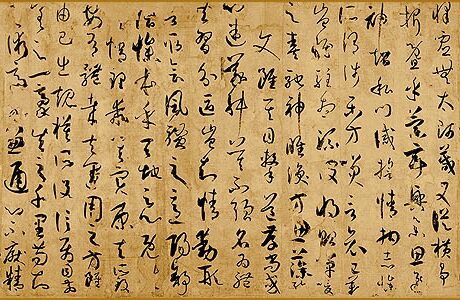 懌虛無太師箴又從橫爭
折暨乎蘭亭興集思逸
神超私門誡誓情拘志慘
所謂涉樂方笑言哀已歎
豈惟駐想流波將貽嘽喭
之奏馳神睢渙方思藻繪之
文雖其目擊道存尚或
心迷義舛莫不強名為體
共習分區豈知情動形
言取會風騷之意陽舒陰
慘本乎天地之心既失
其情理乖其實原夫所致
安有體哉夫運用之方雖
由己出規模所設信屬目前
差之一豪失之千里苟知
其術適可兼通心不厭精